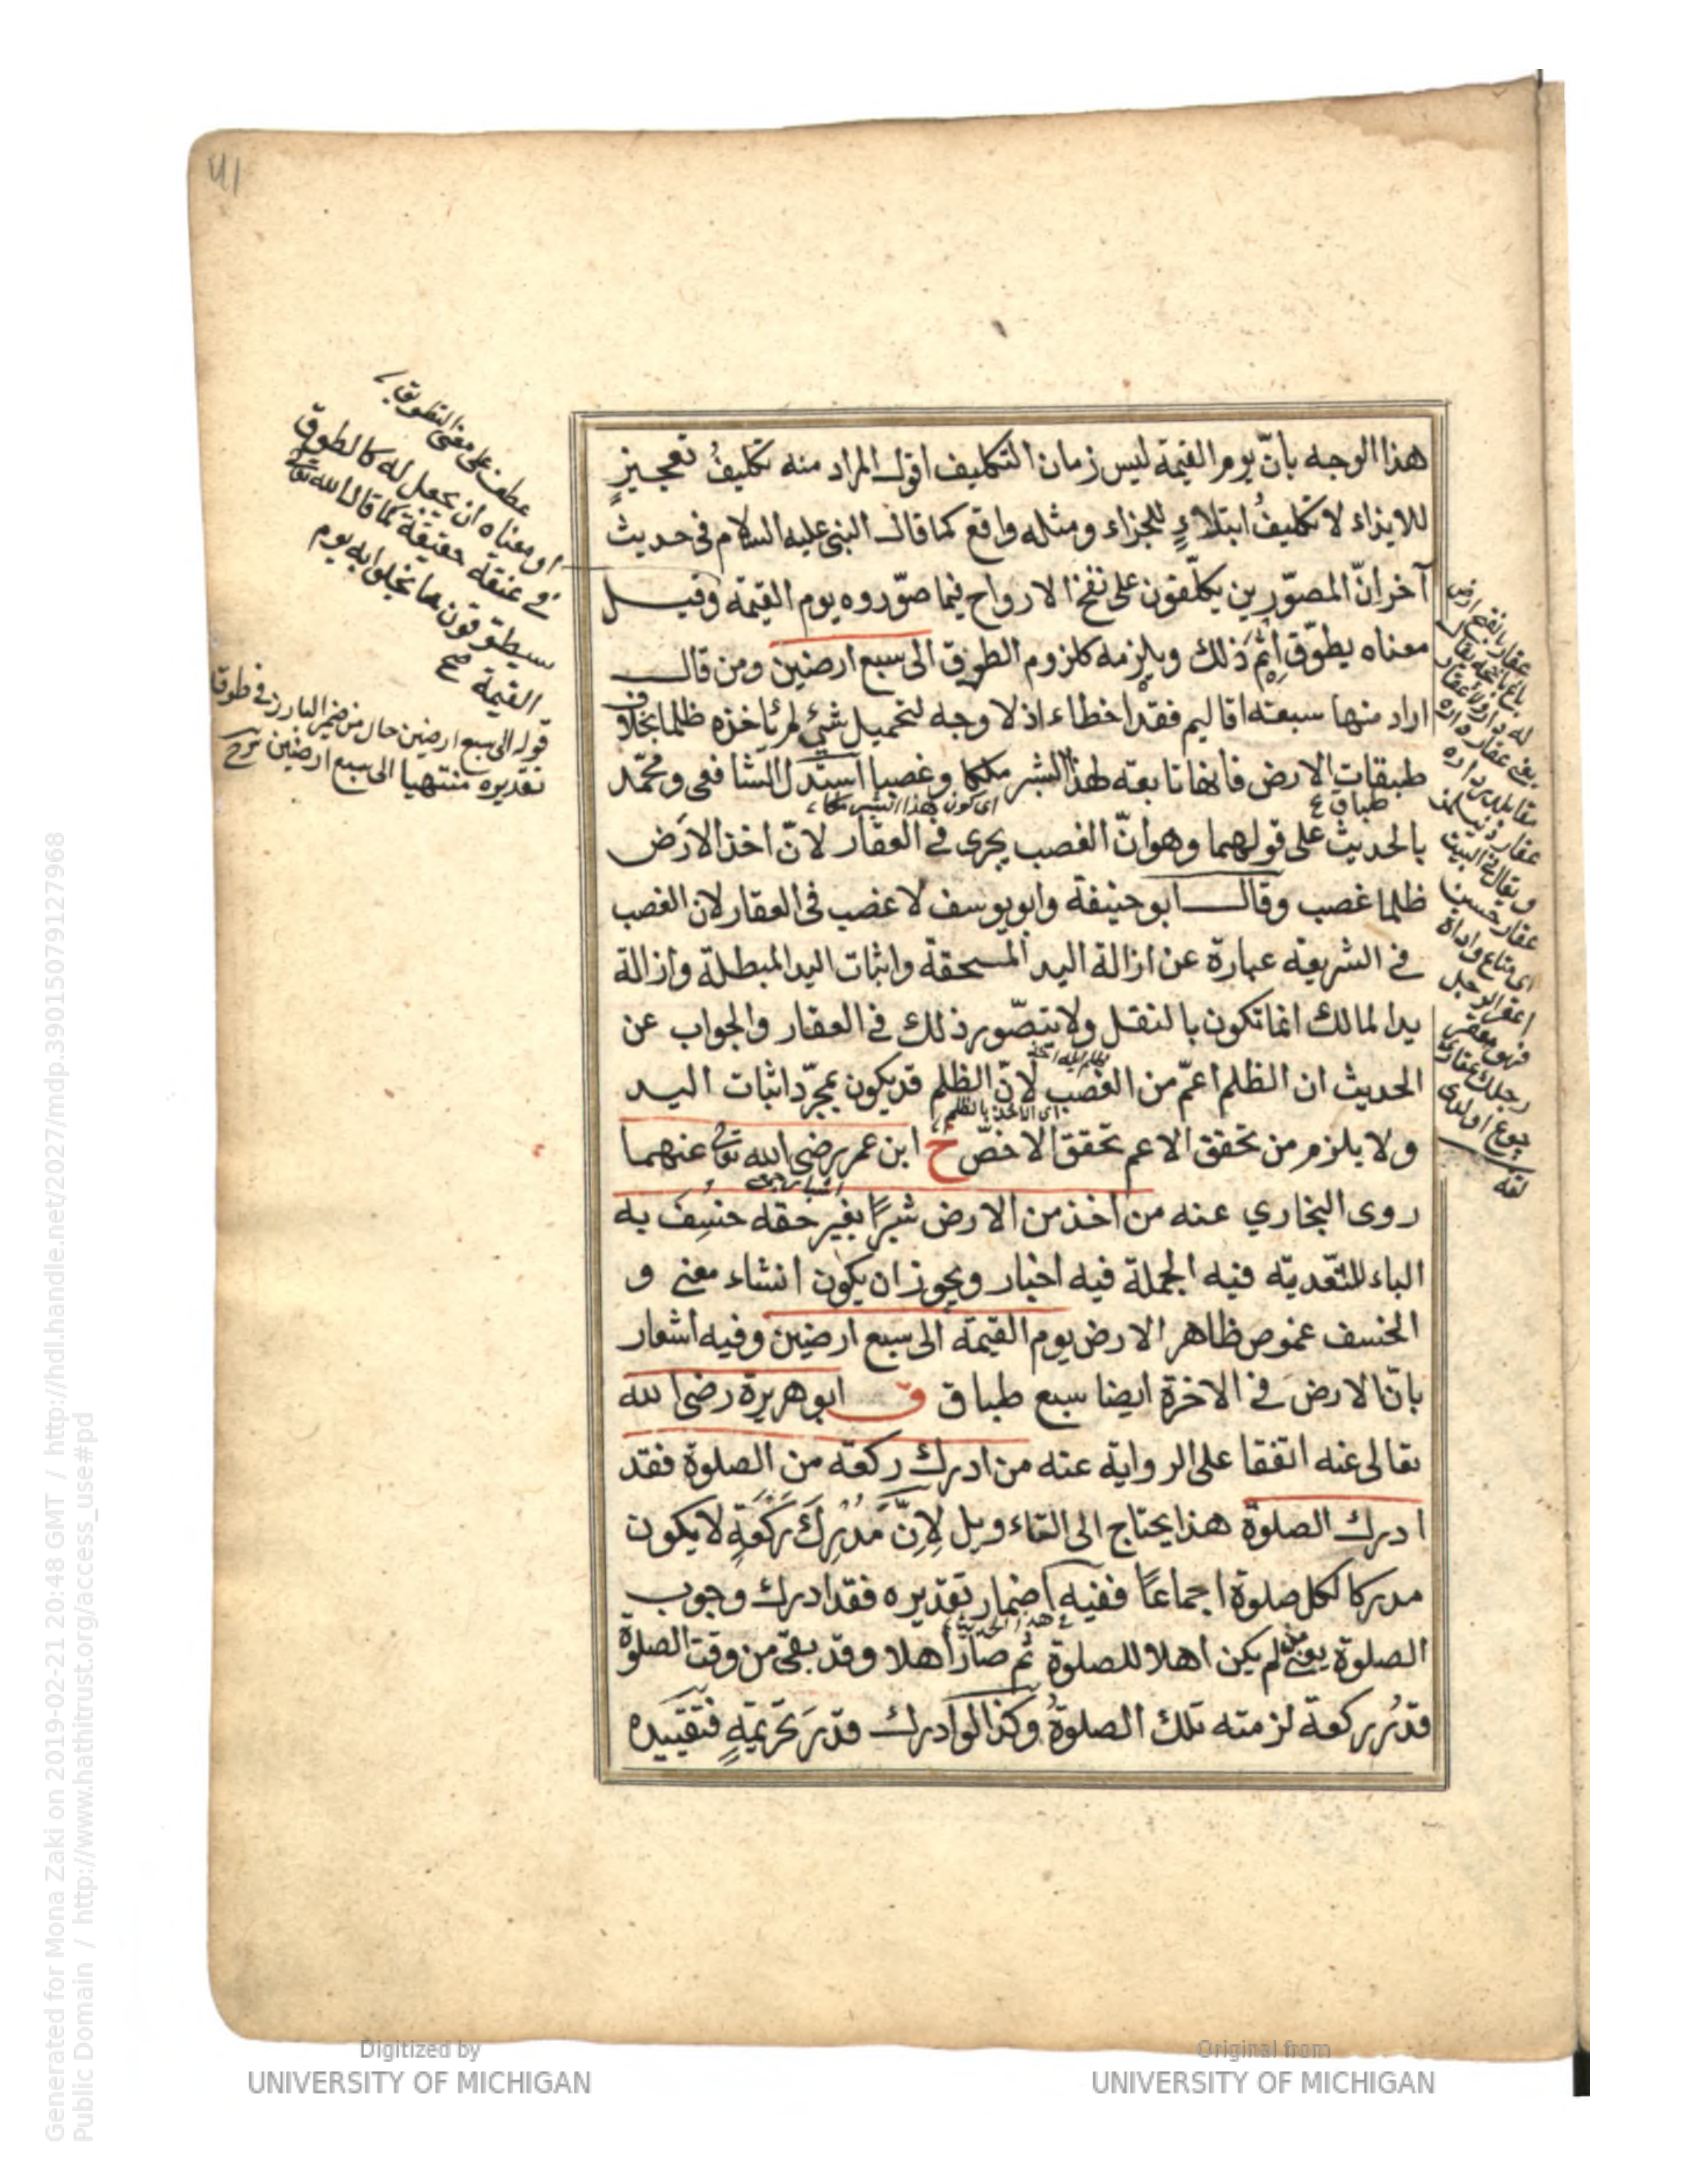 هذا الوجه بانّ يوم القيمة ليس زمان التكليف اقول المراد منه تكليفُ تعجيزٍ
للايذاء لا تكليفُ ابتلاءٍ للجزاء ومثله واقع كما قال النبى عليه السلام فى حديث
آخر انّ المصوّرين يكلّفون على نفخ الارواح فيما صوّروه يوم القيمة وقيل
معناه يطوّق اثم ذلك ويلزمه كلزوم الطوق الى سبع ارضين ومن قال
اراد منها سبعته اقاليم فقد اخطاء اذ لا وجه لتحميل شئ لم ياخذه ظلما بخلاف
طبقات الارض فانها تابعته لهذا الشبر ملكا وغصبا استدلّ الشافعى ومحمّد
طباق
اى كون هذا الشبر ملكا
بالحديث على قولهما وهو انّ الغصب يجرى فى العقار لانّ اخذ الارض
ظلما غصب وقال ابو حنيفة وابو يوسف لا غصب فى العقار لان الغصب
فى الشريعة عبارة عن ازالة اليد المسحقة واثبات اليد المبطلة وازالة
يد المالك انما تكون بالنقل ولا يتصّور ذلك فى العقار والجواب عن
الحديث ان الظلم اعمّ من الغصب لانّ الظلم قد يكون بمجرّد اثبات اليد
اى الاخذ بالظلم
ولا يلزم من تحقق الاعم تحقق الاخصّ خ ابن عمر رضى الله تعا عنهما
روى البخاري عنه من اخذ من الارض شبرًا بغير حقه خسِفَ به
الباء للتّعديّه فيه الجملة فيه اخبار ويجوز ان يكون انشاء معنى و
الخسف غموص ظاهر الارض يوم القيمة الى سبع ارضين وفيه اشعار
بانّ الارض فى الاخرة ايضا سبع طباق ق ابو هريرة رضى الله
تعالى عنه اتفقا على الرواية عنه من ادرك ركعة من الصلوة فقد
ادرك الصلوة هذا يحتاج الى التاءويل لِانَّ مُدْرِكَ رَكْعَةٍ لا يكون
مدركا لكل صلوة اجماعًا ففيه اضمار تقديره فقد ادرك وجوب
فى هذا الحديث
الصلوة يعنى من لم يكن اهلا للصلوة ثم صار اهلا وقد بقى من وقت الصلوة
قدْرُ ركعة لزمته تلك الصلوةُ وكذا لو ادرك قدْرَ تحريمةٍ فتقييده
عطف على معنى التطويق
او معناه ان يجعل له كالطوق
فى عنقه حقيقة كما قال الله تعا
سيطوّقون ما بخلوا به يوم
القيمة
قوله الى سبع ارضين حال من ضمير البارز فى طوقه
تقديره منتهيا الى سبع ارضين
Generated for Mona Zaki on 2019-02-21 20:48 GMT / http://hdl.handle.net/2027/mdp.39015079127968
Public Domain / http://www.hathitrust.org/access_use#pd
Digitized by
UNIVERSITY OF MICHIGAN
Original from
UNIVERSITY OF MICHIGAN